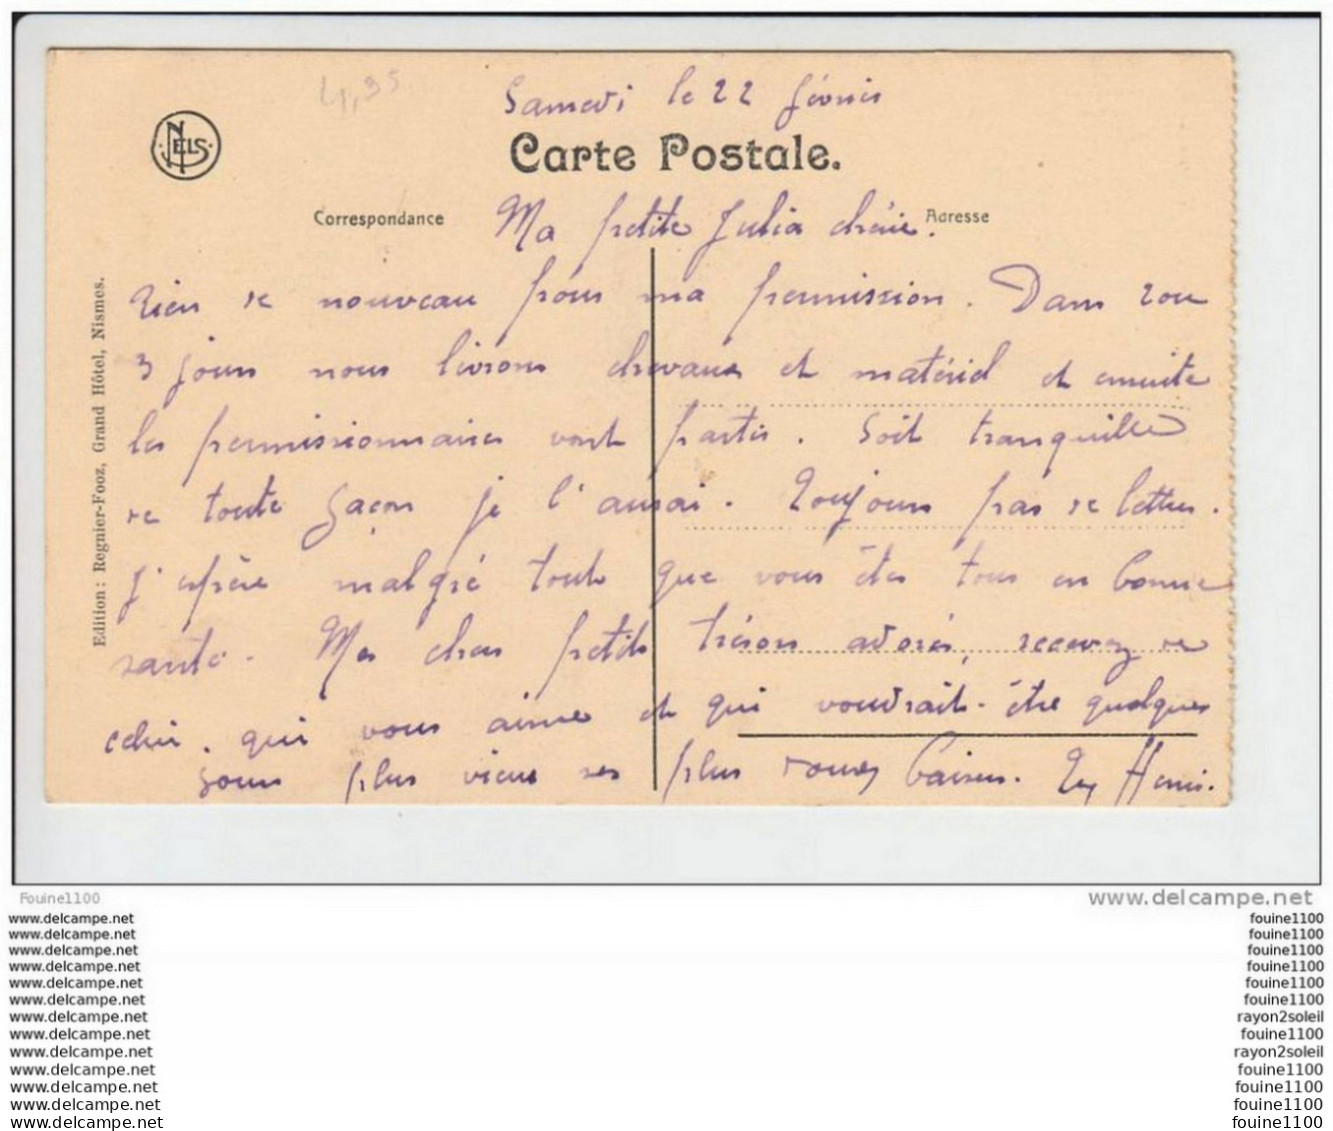 4,35
Samedi le 22 février
NELS
Carte Postale.
Correspondance
Adresse
Ma petite Julia chérie.
Rien de nouveau pour ma permission. Dans 2 ou
3 jours nous livrons chevaux et matériel et ensuite
les permissionnaires vont partir. Soit tranquille
de toute façon je l'aurai. Toujours pas de lettres.
J'espère malgré tout que vous êtes tous en bonne
santé. Mes chers petits trésors adorés, recevez de
celui qui vous aime et qui voudrait être quelques
jours plus vieux ses plus doux baisers. Henri.
Edition : Regnier-Fooz, Grand Hôtel, Nismes.
Fouine1100
www.delcampe.net
www.delcampe.net
fouine1100
www.delcampe.net
fouine1100
www.delcampe.net
fouine1100
www.delcampe.net
fouine1100
www.delcampe.net
fouine1100
www.delcampe.net
fouine1100
www.delcampe.net
rayon2soleil
www.delcampe.net
fouine1100
www.delcampe.net
rayon2soleil
www.delcampe.net
fouine1100
www.delcampe.net
fouine1100
www.delcampe.net
fouine1100
www.delcampe.net
fouine1100